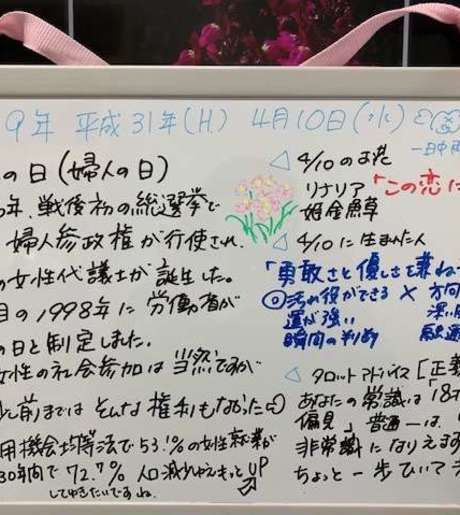 9年 平成31年(H) 4月10日(水)
一日中雨
の日(婦人の日)
年、戦後初の総選挙で
婦人参政権が行使され、
の女性代議士が誕生した。
目の1998年に労働省が
の日と制定しました。
女性の社会参加は当然ですが
少し前まではそんな権利もなかった
用機会均等法で53.1%の女性就業が
30年間で72.7% 人口減少ゆえもっとUP
してゆきたいですね。
◁ 4/10のお花
リナリア 「この恋に
姫金魚草
◁ 4/10に生まれた人
「勇敢さと優しさを兼ね
◎汚れ役ができる × 方向
運が強い 深い
瞬間の判断 融通
◁ タロットアドバイス [正義
あなたの常識は「18才
偏見」普通―は、
非常識になりえます
ちょっと一歩ひいて